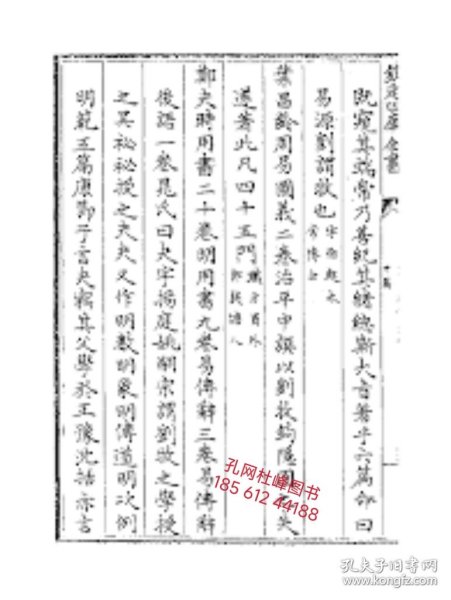 欽定四庫全書
既窮其端常乃善紀其緒總斯大旨著乎六篇命曰
易源劉謂牧也
葉昌齡周易圖義二卷治平中撰以劉牧鈎隱圖之失
遂著此凡四十五門
鄭夬時用書二十卷明用書九卷易傳辭三卷易傳辭
後語一卷晁氏曰夬字揚庭姚嗣宗謂劉牧之學授
之吳祕祕授之夬夬又作明數明象明傳道明次例
明範五篇康節子言夬竊其父學於王豫沈括亦言
孔网杜峰图书
185 612 44188
孔夫子旧书网
www.kongfz.com